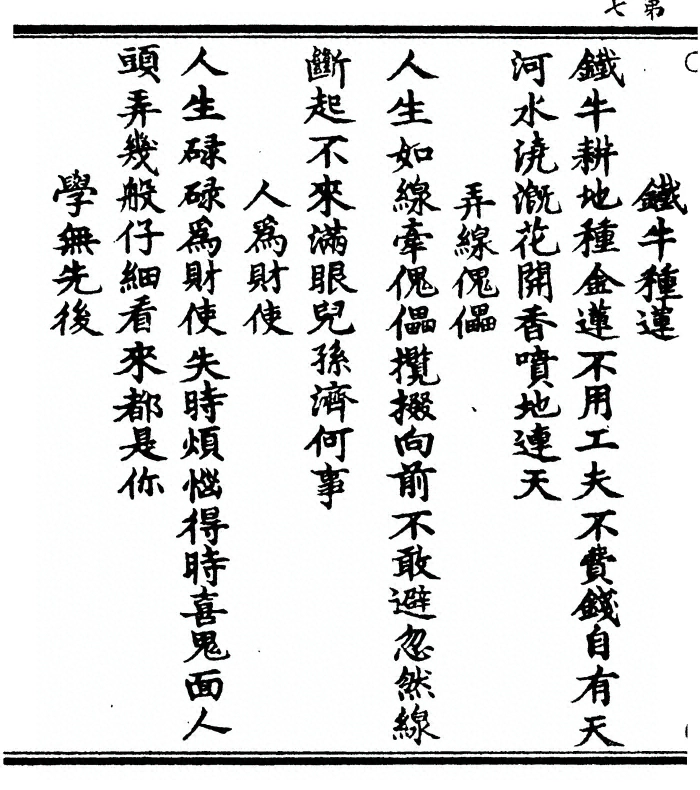 第七
鐵牛種蓮
鐵牛耕地種金蓮不用工夫不費錢自有天
河水澆溉花開香噴地連天
弄線傀儡
人生如線牽傀儡攬掇向前不敢避忽然線
斷起不來滿眼兒孫濟何事
人為財使
人生碌碌爲財使失時煩惱得時喜鬼面人
頭弄幾般仔細看來都是你
學無先後